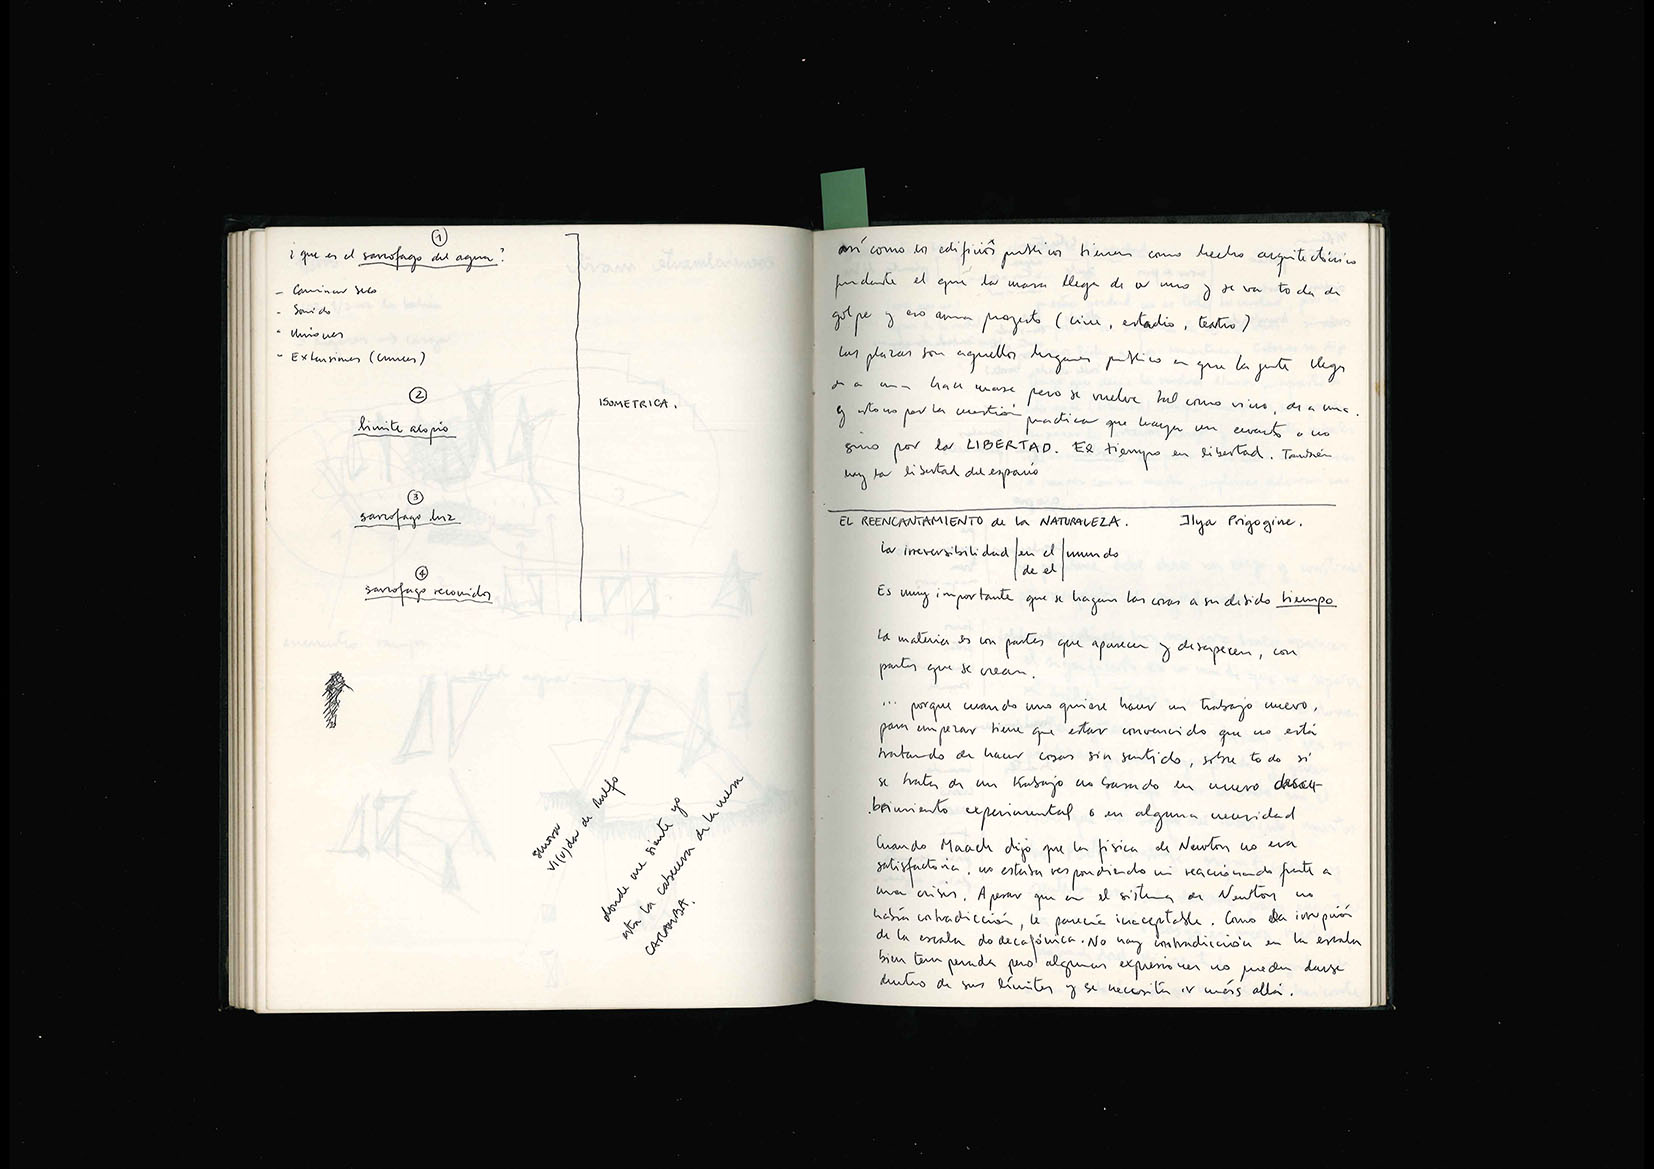 ①
¿ que es el sarcofago del agua?
- Caminar seco
- Sonido
- Uniones
- Extensiones (cruces)
②
limite acopio
③
sarcofago luz
④
sarcofago recorridos
ISOMETRICA.
señora
vi(u)da de Rulfo
donde me siento yo
esta la cabecera de la mesa
CARAMBA.
así como los edificios publicos tienen como hecho arquitectónico
fundante el que la masa llega de a uno y se va toda de
golpe y eso arma proyecto (cine, estadio, teatro)
Las plazas son aquellos lugares publico en que la gente llega
de a uno hace masa pero se vuelve tal como vino, de a uno.
y esto no por la cuestión practica que haya un evento o no
sino por la LIBERTAD. El tiempo en libertad. También
hay la libertad del espacio
EL REENCANTAMIENTO de la NATURALEZA. Ilya Prigogine.
la irreversibilidad | en el | mundo
de el
Es muy importante que se hagan las cosas a su debido tiempo
la materia es con partes que aparecen y desaparecen, con
partes que se crean.
... porque cuando uno quiere hacer un trabajo nuevo,
para empezar tiene que estar convencido que no está
tratando de hacer cosas sin sentido, sobre todo si
se trata de un trabajo no basado en nuevo descu-
brimiento experimental o en alguna necesidad
Cuando Maach dijo que la fisica de Newton no era
satisfactoria, no estaba respondiendo ni reaccionando frente a
una crisis. Apesar que en el sistema de Newton no
había contradicción, le parecía inaceptable. Como la irrupción
de la escala dodecafónica. No hay contradicción en la escala
bien temperada pero algunas expresiones no pueden darse
dentro de sus límites y se necesita ir más allá.